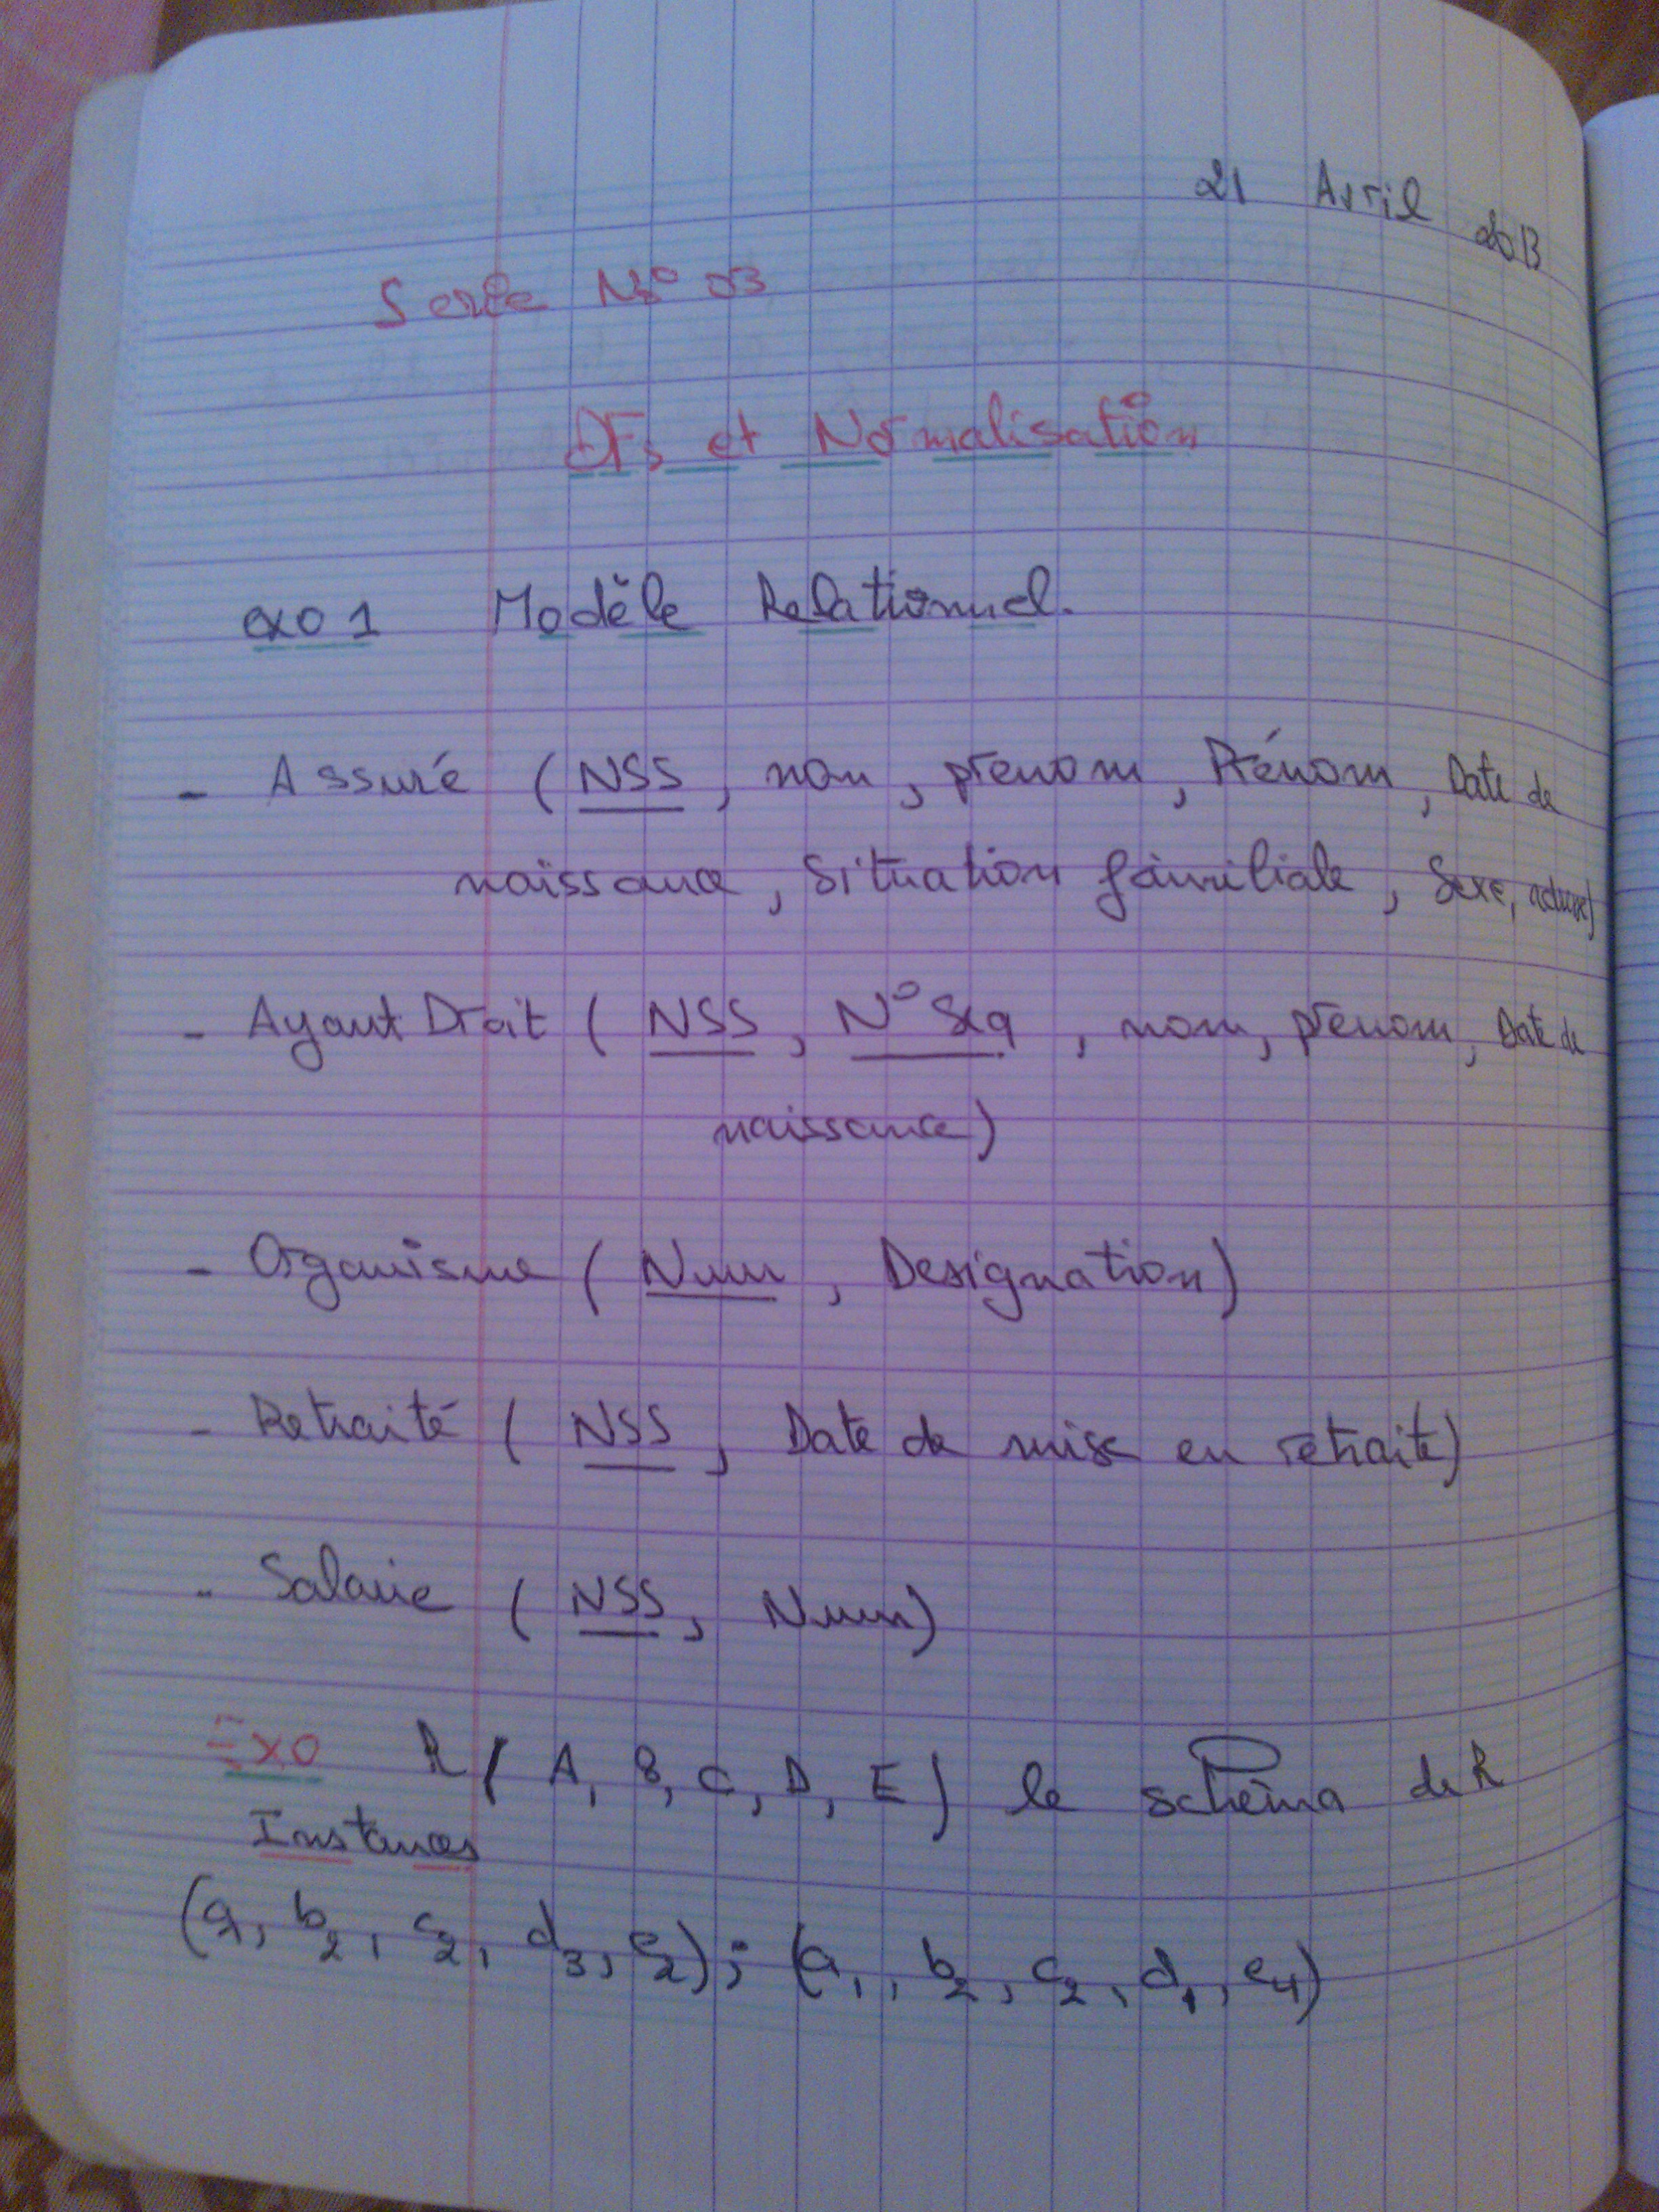 21 Avril 2013
Serie N° 03
DFs et Normalisation
exo 1 Modèle Relationnel.
- Assuré (NSS, nom, prenom, Prénom, Date de
naissance, Situation familiale, Sexe, adresse)
- Ayant Droit (NSS, N° Seq, nom, prenom, Date de
naissance)
- Organisme (Num, Designation)
- Retraité (NSS, Date de mise en retraite)
- Salarie (NSS, Num)
Exo R(A, B, C, D, E) le schéma de R
Instances
(a, b2, c2, d3, e2); (a1, b2, c2, d1, e4)